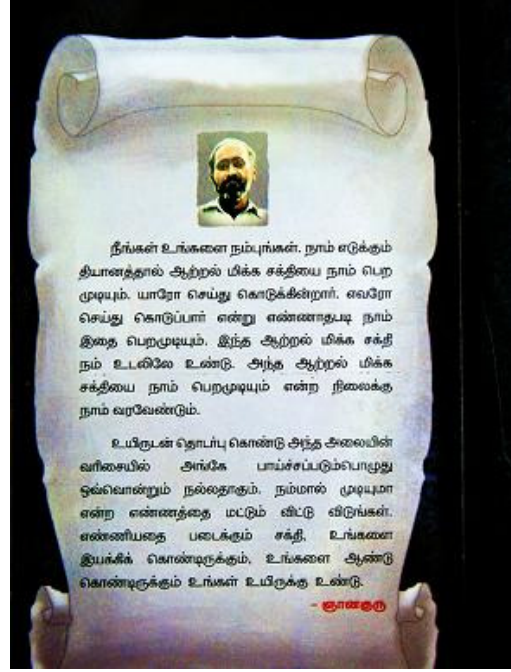 நீங்கள் உங்களை நம்புங்கள். நாம் எடுக்கும்
தியானத்தால் ஆற்றல் மிக்க சக்தியை நாம் பெற
முடியும். யாரோ செய்து கொடுக்கின்றார். எவரோ
செய்து கொடுப்பார் என்று எண்ணாதபடி நாம்
இதை பெறமுடியும். இந்த ஆற்றல் மிக்க சக்தி
நம் உடலிலே உண்டு. அந்த ஆற்றல் மிக்க
சக்தியை நாம் பெறமுடியும் என்ற நிலைக்கு
நாம் வரவேண்டும்.
உயிருடன் தொடர்பு கொண்டு அந்த அலையின்
வரிசையில் அங்கே பாய்ச்சப்படும்பொழுது
ஒவ்வொன்றும் நல்லதாகும். நம்மால் முடியுமா
என்ற எண்ணத்தை மட்டும் விட்டு விடுங்கள்.
எண்ணியதை படைக்கும் சக்தி, உங்களை
இயக்கிக் கொண்டிருக்கும், உங்களை ஆண்டு
கொண்டிருக்கும் உங்கள் உயிருக்கு உண்டு.
- ஞானகுரு